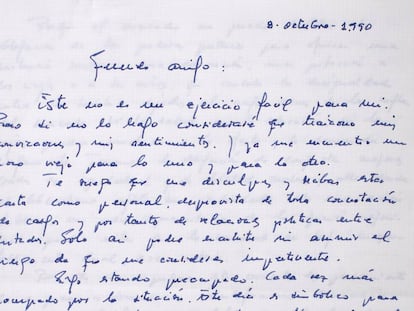 8 - octubre - 1.990
Querido amigo:
Este no es un ejercicio fácil para mi.
Pero si no lo hago consideraré que traiciono mis
convicciones y mis sentimientos. Y ya me encuentro un
poco viejo para lo uno y para lo otro.
Te ruego que me disculpes y recibas esta
carta como personal, desprovista de toda connotación
de cargos y por tanto de relaciones políticas entre
Solo asi podré escribirte sin asumir el
riesgo de que me consideres impertinente.
Sigo estando preocupado. Cada vez más
preocupado por la situación. Este día es simbólico para